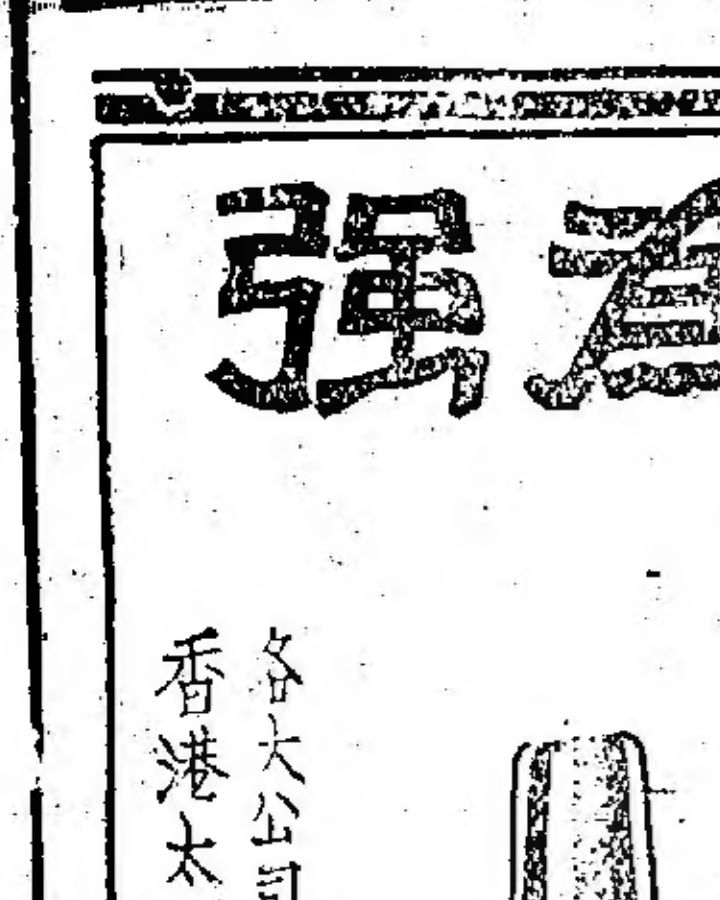 强
各大公司
香港太